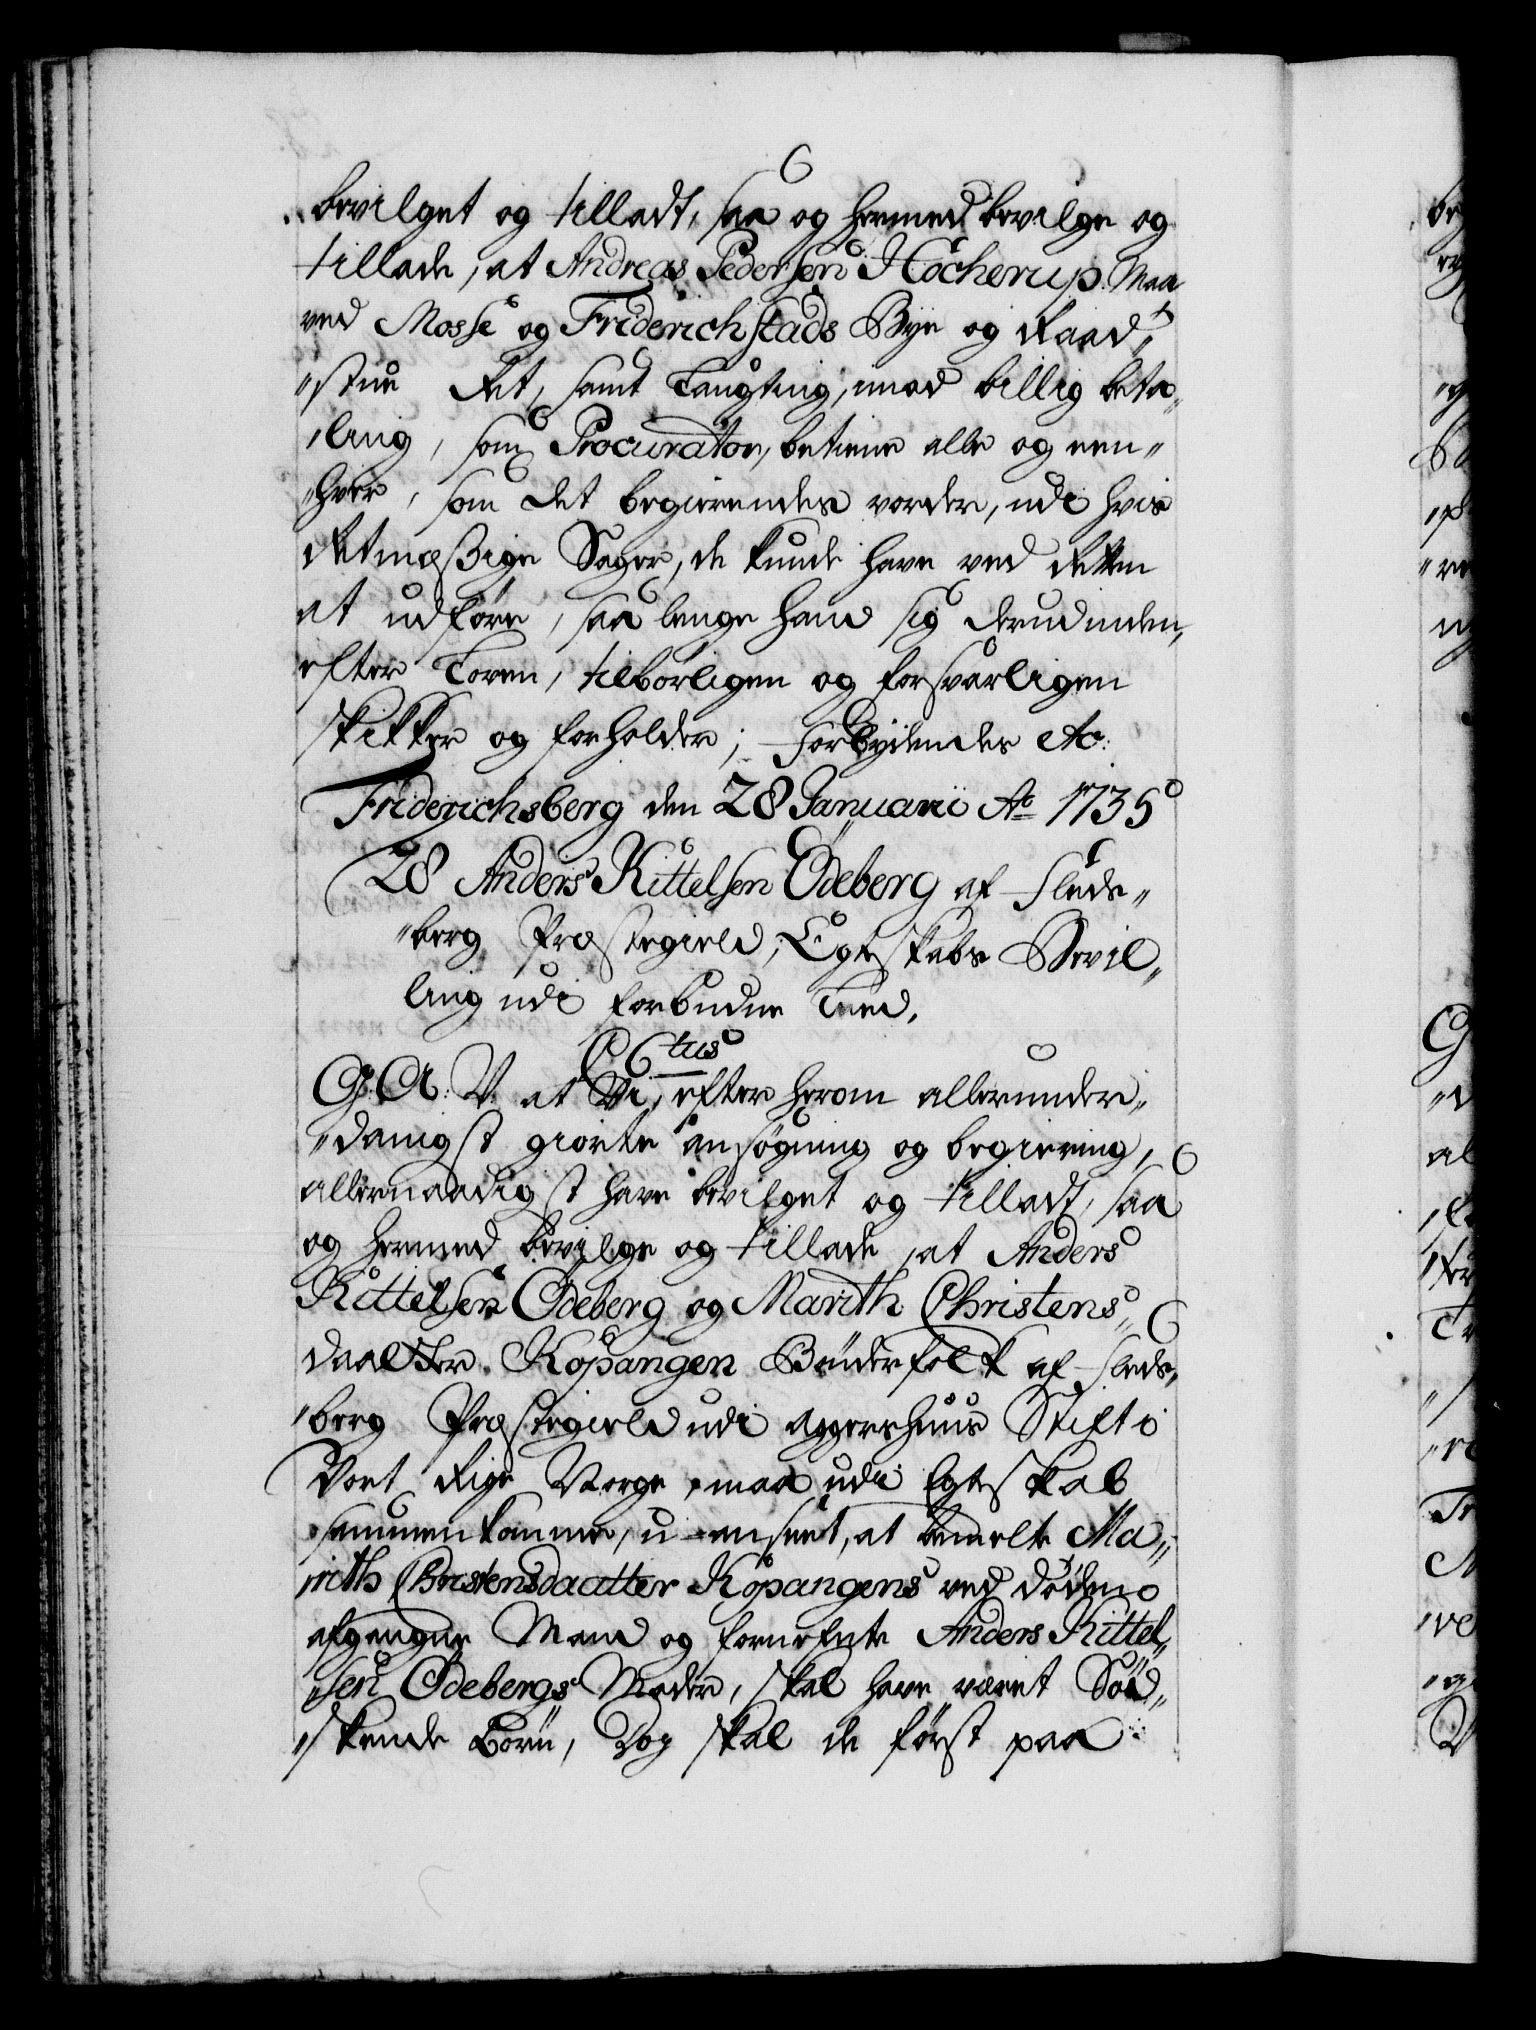 bevilget og tilladt, saa og hermed bevilge og
tillade, at Andreas Pedersen Höcherup. Maa
ved Mosse og Friderichstads Bye og Raad„
„stue Ret, samt Laugting, imod billig beta„
„ling, som Procurator, betiene alle og een„
„hver, som det begierendes vorder, udi hvis
Retmæßige Sager, de kunde have ved Retten
at udføre, saa lenge hand sig derudinden,
efter Loven, tilbørligen og forsvarligen
skikker og forholder; Forbydendes etc:
Friderichsberg den 28 Januarii Ao 1735
28 Anders Kittelsen Ödeberg af Fleds„
„berg Præstegield, Egteskabs Bevil„
ling udi forbudne Leed.
C 6tus
G. A: V. at Vi, efter herom allerunder„
„danigst giorte ansøgning og begiering,
allernaadigst have bevilget og tilladt, saa
og hermed bevilge og tillade, at Anders
Kittelsen Ödeberg og Marith Christens„
daatter Kopangen Bønderfolk af Fleds„
„berg Præstegield udi Aggershuus Stift i
Vort Rige Norge, maa udi Egteskab
sammenkomme, u-anseet, at bemelte Ma„
„rith Christensdaatter Kopangens ved døden
afgangne Mand og fornefnte Anders Kittel„
„sen Ödebergs Moder, skal have været Sød„
„skende Børn, Dog skal de først paa